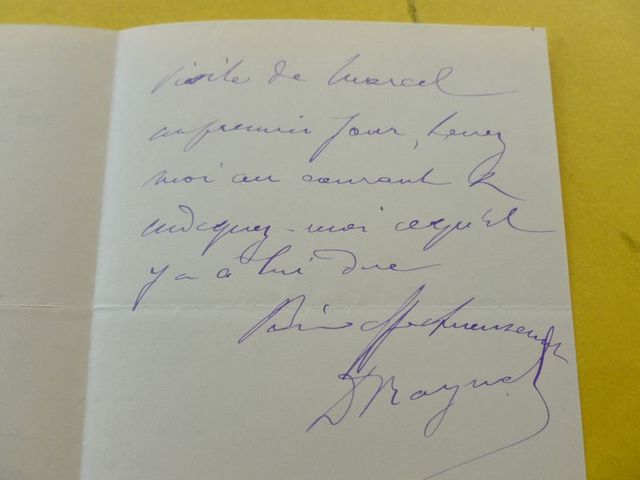 visite de Marcel
au premier jour, tenez
moi au courant &
indiquez-moi ce qu'il
y a à lui dire
Bien affectueusement
D Raynal